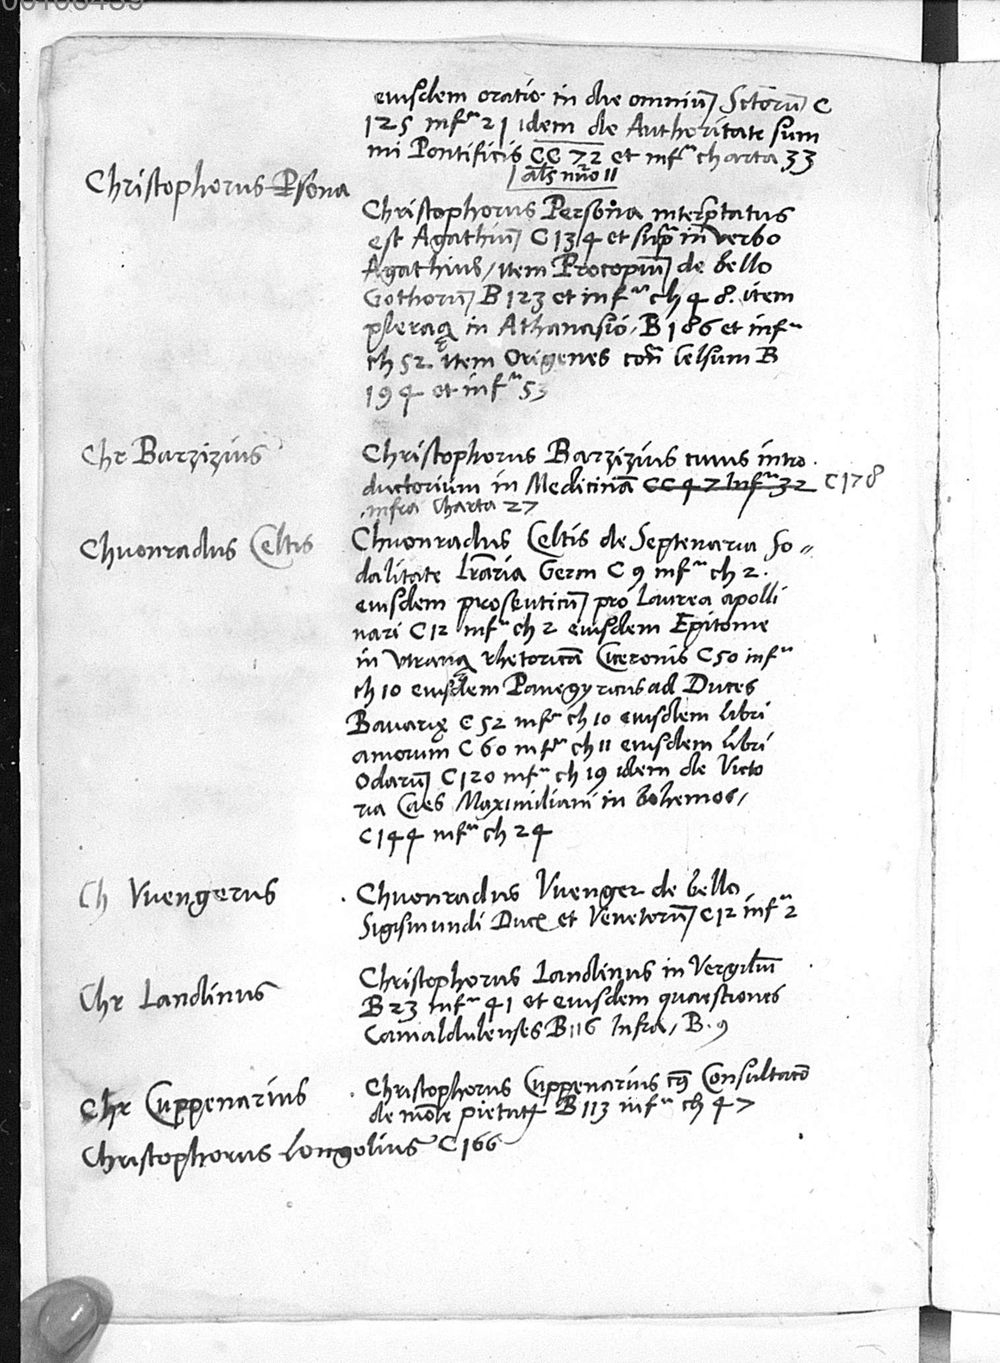 eiusdem oratio in die omniū Sctōrū C
125 infᵃ 21 idem de Authoritate sum
mi Pontificis CC 72 et infᵃ charta 33
als nūo 11
Christophorus Psona
Christophorus Persona interp̄tatus
est Agathiū C 134 et supᵃ in verbo
Agathius / item Procopiū de bello
Gothorū B 123 et infᵃ ch 48. item
pleraq̨ in Athanasió B 186 et infᵃ
ch 52. item Origenes cōñ Celsum B
194 et infᵃ 53
Chr Barzizius
Christophorus Barzizius cuius intro
ductorium in Medicinā CC 47 Infᵃ 32 C 178
infra Charta 27
Chuonradus Celtis
Chuonradus Celtis de Septenaria so-
dalitate Lr̄aria Germ C 9 infᵃ ch 2.
eiusdem proseuticū pro Laurea apolli
nari C 12 infᵃ ch 2 eiusdem Epitome
in vtranq̨ rhetoricā Ciceronis C 50 infᵃ
ch 10 eiusdem Panegyricus ad Duces
Bauarię C 52 infᵃ ch 10 eiusdem Libri
amorum C 60 infᵃ ch 11 eiusdem Libri
Odarū C 120 infᵃ ch 19 idem de Victo
ria Caes Maximiliani in bohemos /
C 144 infᵃ ch 24
Ch Vuengerus
Chuonradus Vuenger de bello
Sigismundi Duc et Venetorū C 12 infᵃ 2
Chr Landinus
Christophorus Landinus in Vergiliū
B 23 infᵃ 41 et eiusdem quaestiones
Camaldulenses B 116 Infra / B. 9
Chr Cuppenarius
Christophorus Cuppenarius c9 Consultatō
de mōte pietatꝭ B 113 infᵃ ch 47
Christophorus Longolius C 166